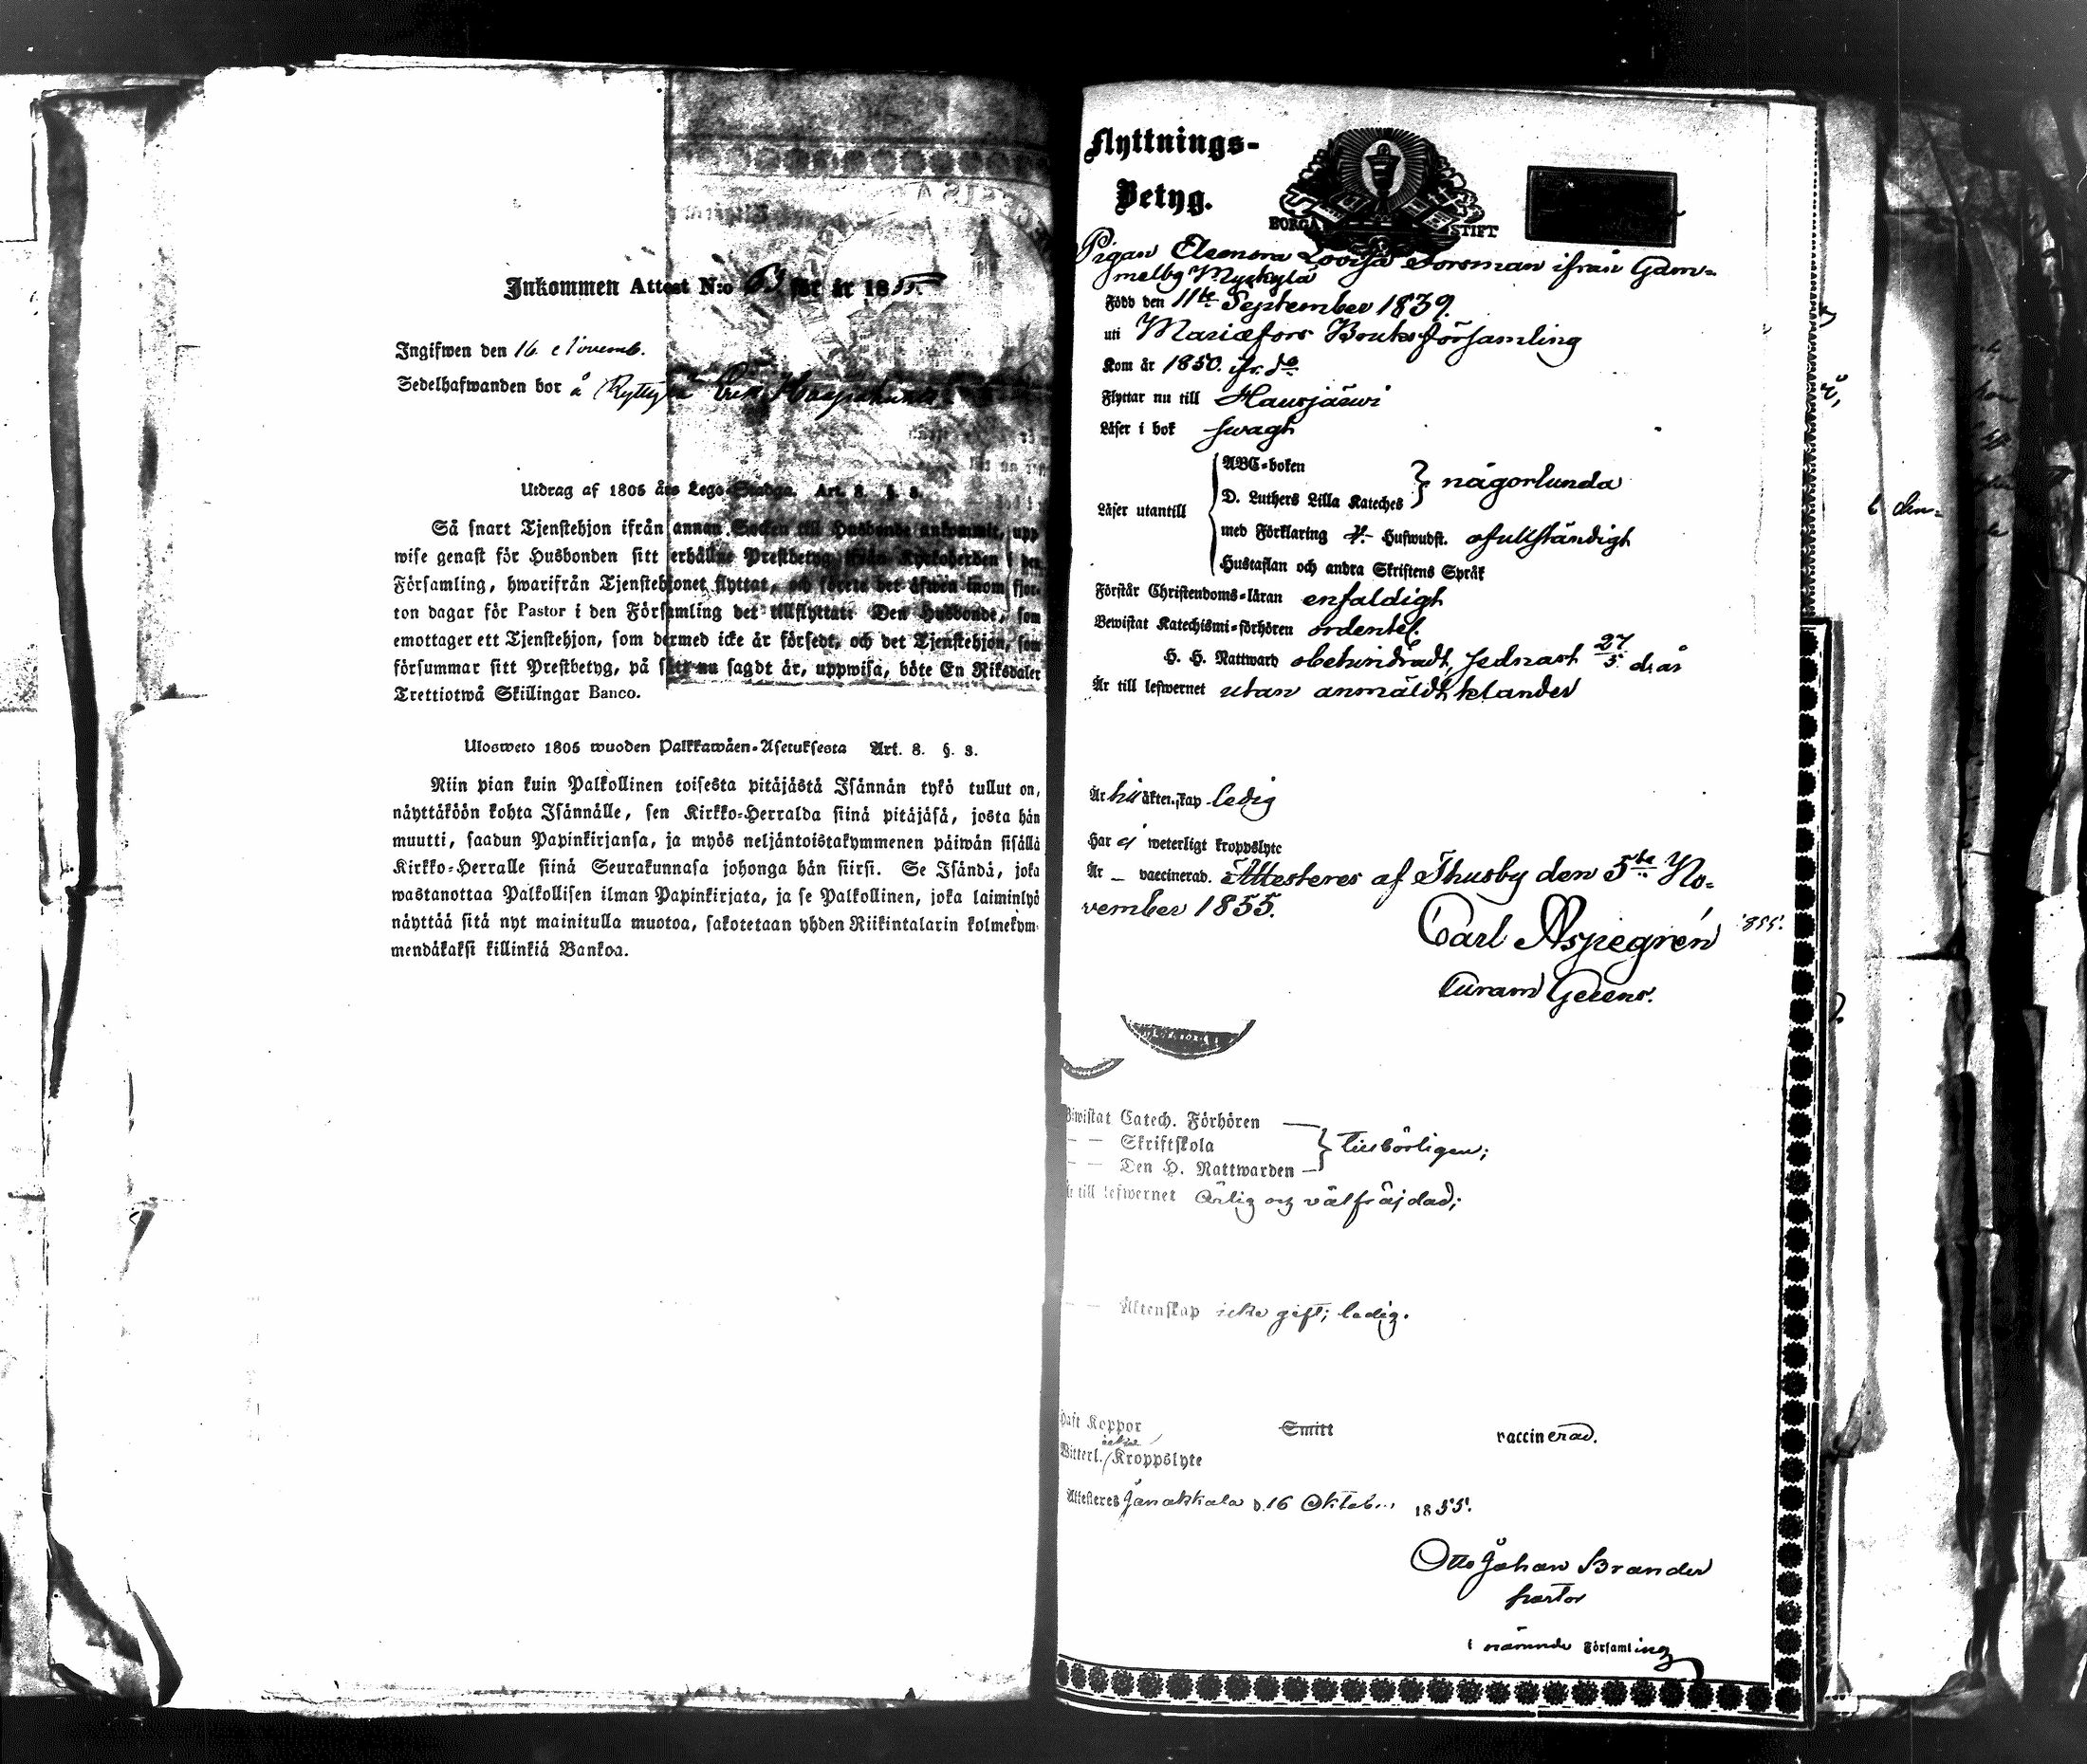 Inkommen Attest N:o 63 för år 1855.
Ingifwen den 16 Novemb.
Sedelhafwanden bor å Ryttylä
Utdrag af 1805 års Lego-Stadga. Art. 8. §. 8.
Så snart Tjenstehjon ifrån annan Socken till Husbonde ankommit, upp
wise genast för Husbonden sitt erhållne Prestbetyg ifrån Kyrkoherden i den
Församling, hwarifrån Tjenstehjonet flyttat, och förete det äfwen inom fjor-
ton dagar för Pastor i den Församling det tillflyttat: Den Husbonde, som
emottager ett Tjenstehjon, som dermed icke är försedt, och det Tjenstehjon, som
försummar sitt Prestbetyg, på sätt nu sagdt är, uppwisa, böte En Riksdaler
Trettiotwå Skillingar Banco.
Ulosweto 1805 wuoden Palkkawäen-Asetuksesta Art. 8. §. 8.
Niin pian kuin Palkollinen toisesta pitäjästä Isännän tykö tullut on,
näyttäköön kohta Isännälle, sen Kirkko-Herralda siinä pitäjäsä, josta hän
muutti, saadun Papinkirjansa, ja myös neljäntoistakymmenen päiwän sisällä
Kirkko-Herralle siinä Seurakunnasa johonga hän siirsi. Se Isändä, joka
wastanottaa Palkollisen ilman Papinkirjata, ja se Palkollinen, joka laiminlyö
näyttää sitä nyt mainitulla muotoa, sakotetaan yhden Riikintalarin kolmekym-
mendäkaksi killinkiä Bankoa.
Flyttnings-
Betyg.
BORGÅ STIFT
Pigan Eleonora Lovisa Forsman ifrån Gam-
melby Myrkylä
Född den 11te September 1839.
uti Mariæfors Bruksförsamling
Kom år 1850. ifr. do
Flyttar nu till Hausjärwi
Läser i bok swagt
Läser utantill
ABC-boken
D. Luthers Lilla Kateches } någorlunda
med Förklaring Hufwudst. ofullständigt
Hustaflan och andra Skriftens Språk
Förstår Christendoms-läran enfaldigt
Bewistat Katechismi-förhören ordentel.
H. H. Nattward obehindradt, sednast 27/5 d. år
Är till lefwernet utan anmäldt klander
Är till äktenskap ledig
Har ej weterligt kroppslyte
Är – vaccinerad. Attesteres af Thusby den 5te No-
vember 1855.
Carl Aspegrén
Curam Gerens.
1855.
Bewistat Catech. Förhören
— — Skriftskola } tillbörligen;
— — Den H. Nattwarden
Är till lefwernet Ärlig og välfräjdad;
— — Äktenskap icke gift; ledig.
Haft Koppor Smitt vaccinerad.
icke
Witterl. Kroppslyte
Attesteres Janakkala d. 16 Oktob. 1855.
Otto Johan Brander
pastor
i nämnde Församling